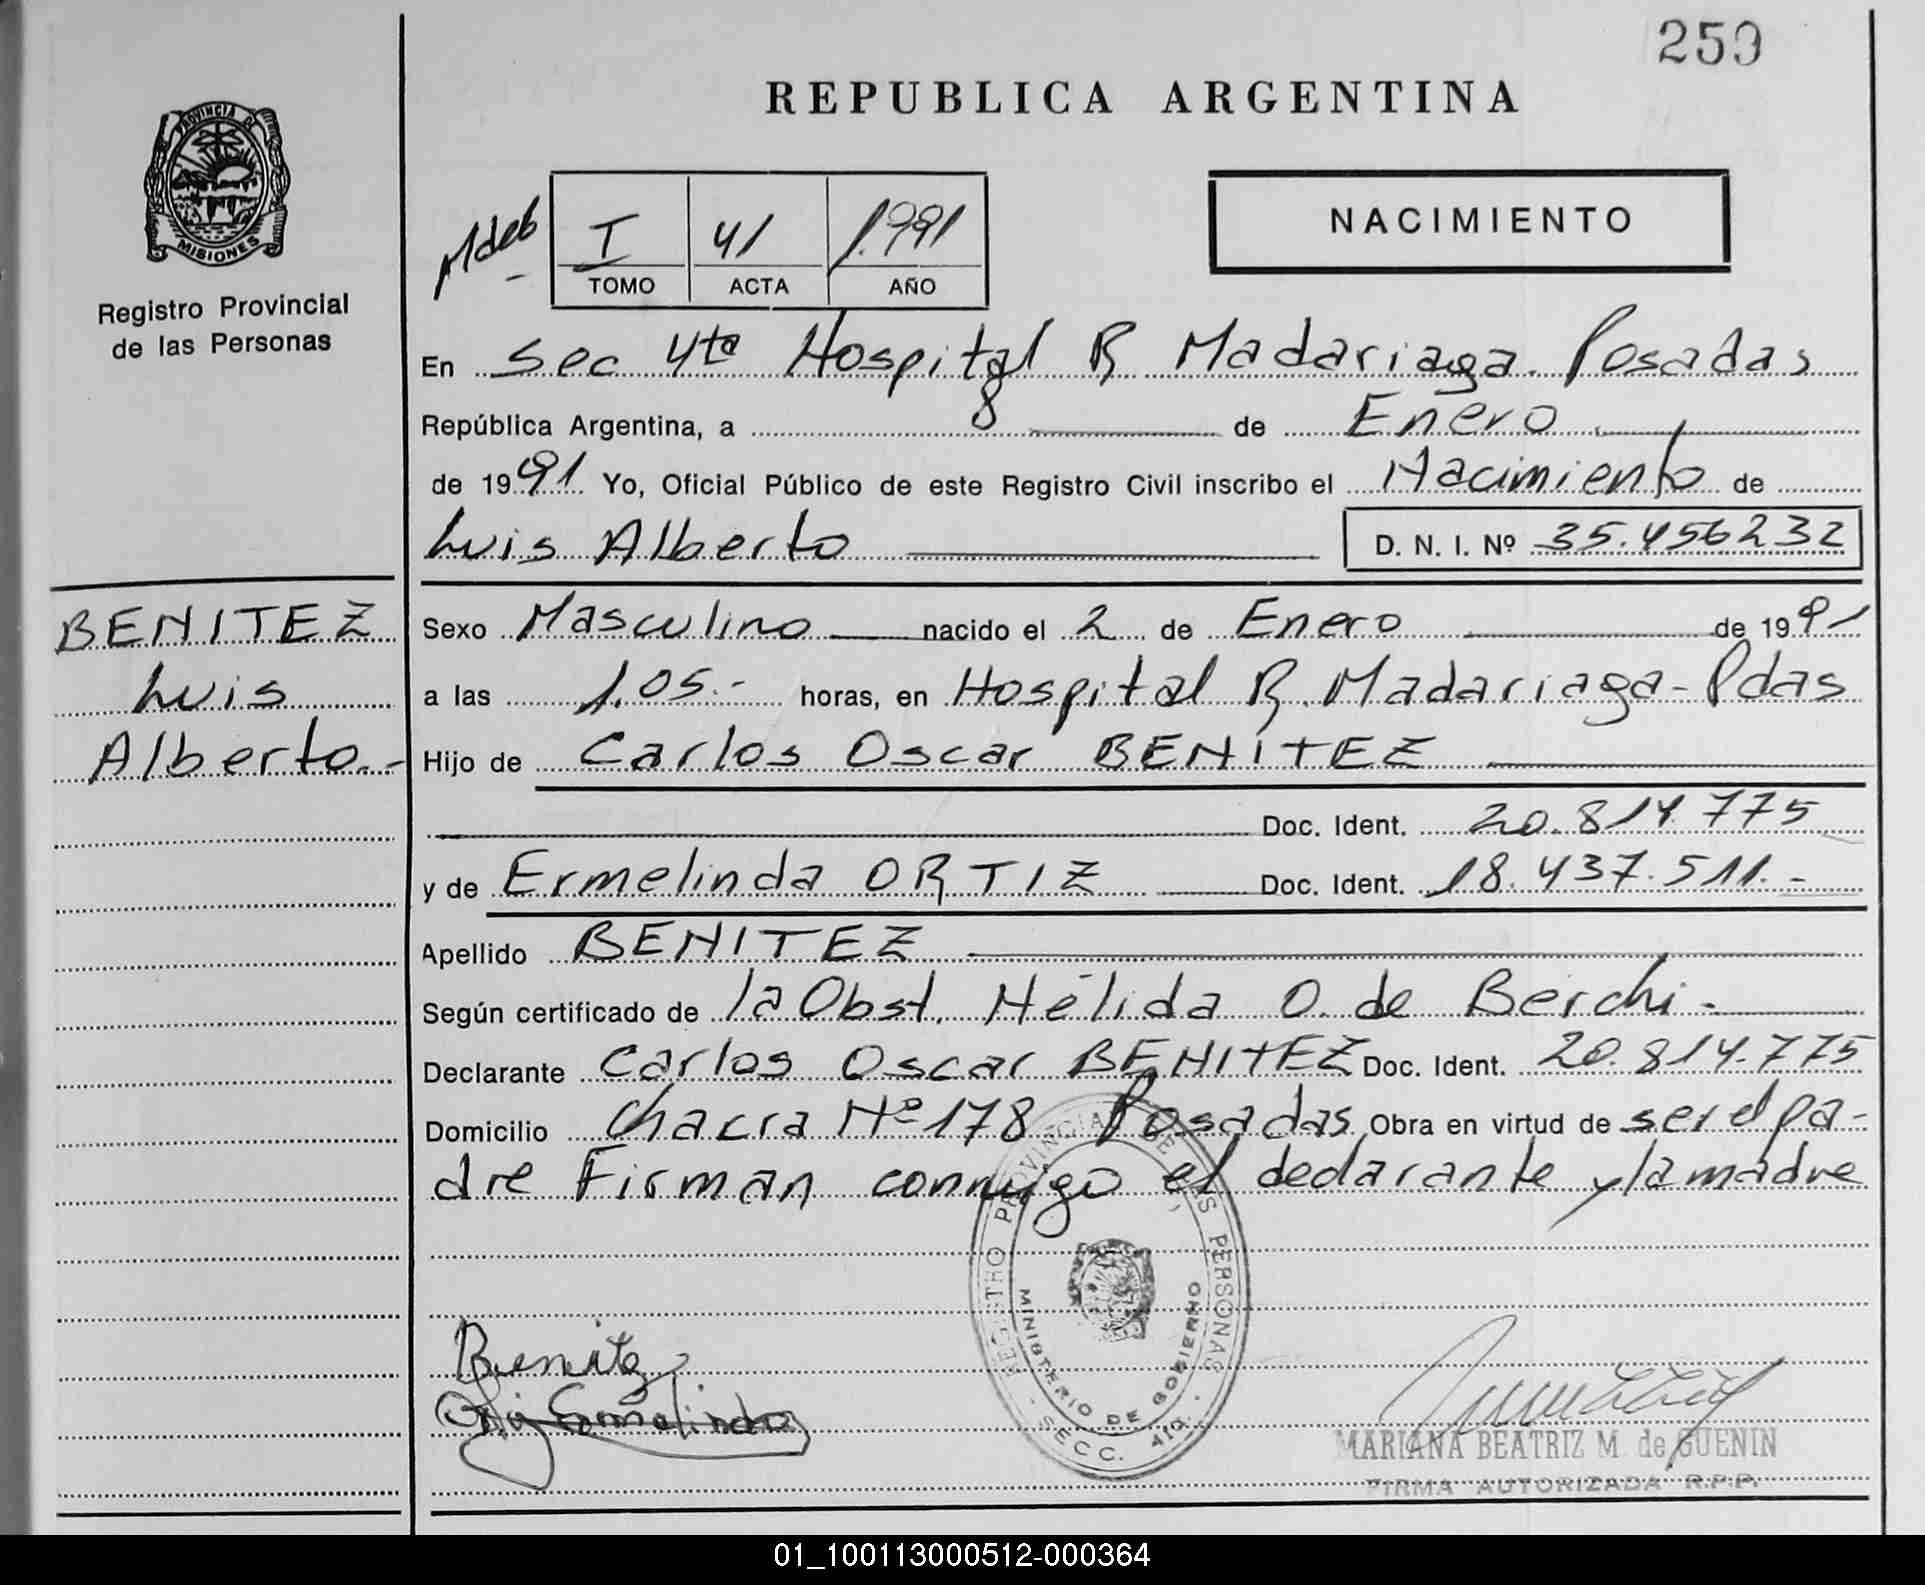 259
REPUBLICA ARGENTINA
PROVINCIA DE
MISIONES
Registro Provincial
de las Personas
Mdeb
I 41 1.991
TOMO ACTA AÑO
NACIMIENTO
En Sec 4ta Hospital R Madariaga. Posadas
República Argentina, a 8 de Enero
de 1991 Yo, Oficial Público de este Registro Civil inscribo el Nacimiento de
Luis Alberto D. N. I. Nº 35.456232
BENITEZ
Luis
Alberto.-
Sexo Masculino nacido el 2 de Enero de 1991
a las 1.05.- horas, en Hospital R. Madariaga-Pdas
Hijo de Carlos Oscar BENITEZ
Doc. Ident. 20.814.775
y de Ermelinda ORTIZ Doc. Ident. 18.437.511.-
Apellido BENITEZ
Según certificado de la Obst. Nélida O. de Berchi.-
Declarante Carlos Oscar BENITEZ Doc. Ident. 20.814.775
Domicilio Chacra Nº 178 Posadas Obra en virtud de ser el pa-
dre Firman conmigo el declarante y la madre
REGISTRO PROVINCIAL DE LAS PERSONAS
MINISTERIO DE GOBIERNO
SECC. 4ta.
Benitez
Ermelinda
MARIANA BEATRIZ M. de GUENIN
FIRMA AUTORIZADA R.P.P.
01_100113000512-000364